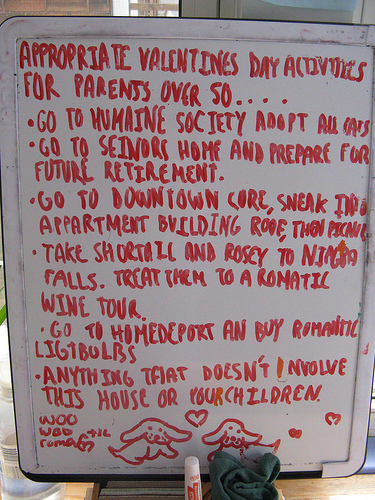 APPROPRIATE VALENTINES DAY ACTIVITIES
FOR PARENTS OVER 50....
• GO TO HUMAINE SOCIETY ADOPT ALL CATS
• GO TO SEINORS HOME AND PREPARE FOR
FUTURE RETIREMENT.
• GO TO DOWNTOWN CORE, SNEAK INTO
APPARTMENT BUILDING ROOF, THEN PICNIC
• TAKE SHORTAIL AND ROSEY TO NIAGRA
FALLS. TREAT THEM TO A ROMATIC
WINE TOUR.
• GO TO HOMEDEPORT AN BUY ROMANTIC
LIGTBULBS
• ANYTHING THAT DOESN'T INVOLVE
THIS HOUSE OR YOUR CHILDREN.
WOO
WOO
romantic